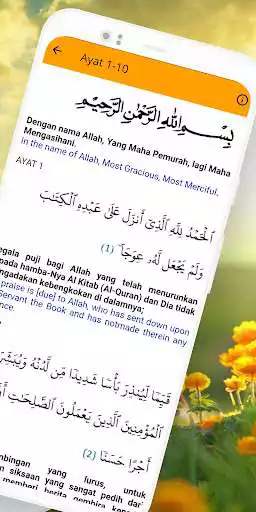 Ayat 1-10
بِسْمِ اللهِ الرَّحْمٰنِ الرَّحِيْمِ
Dengan nama Allah, Yang Maha Pemurah, lagi Maha
Mengasihani.
in the name of Allah, Most Gracious, Most Merciful.
AYAT 1
الْحَمْدُ لِلَّهِ الَّذِي أَنزَلَ عَلَىٰ عَبْدِهِ الْكِتَابَ
وَلَمْ يَجْعَل لَّهُ عِوَجًا ۜ
(1)
egala puji bagi Allah yang telah menurunkan
epada hamba-Nya Al Kitab (Al-Quran) dan Dia tidak
engadakan kebengkokan di dalamnya;
praise is [due] to Allah, who has sent down upon
Servant the Book and has notmade therein any
nce.
قَيِّمًا لِّيُنذِرَ بَأْسًا شَدِيدًا مِّن لَّدُنْهُ وَيُبَشِّرَ
الْمُؤْمِنِينَ الَّذِينَ يَعْمَلُونَ الصَّالِحَاتِ
أَجْرًا حَسَنًا
(2)
mbingan yang lurus, untuk
siksaan yang sangat pedih dari
memberi berita gembira